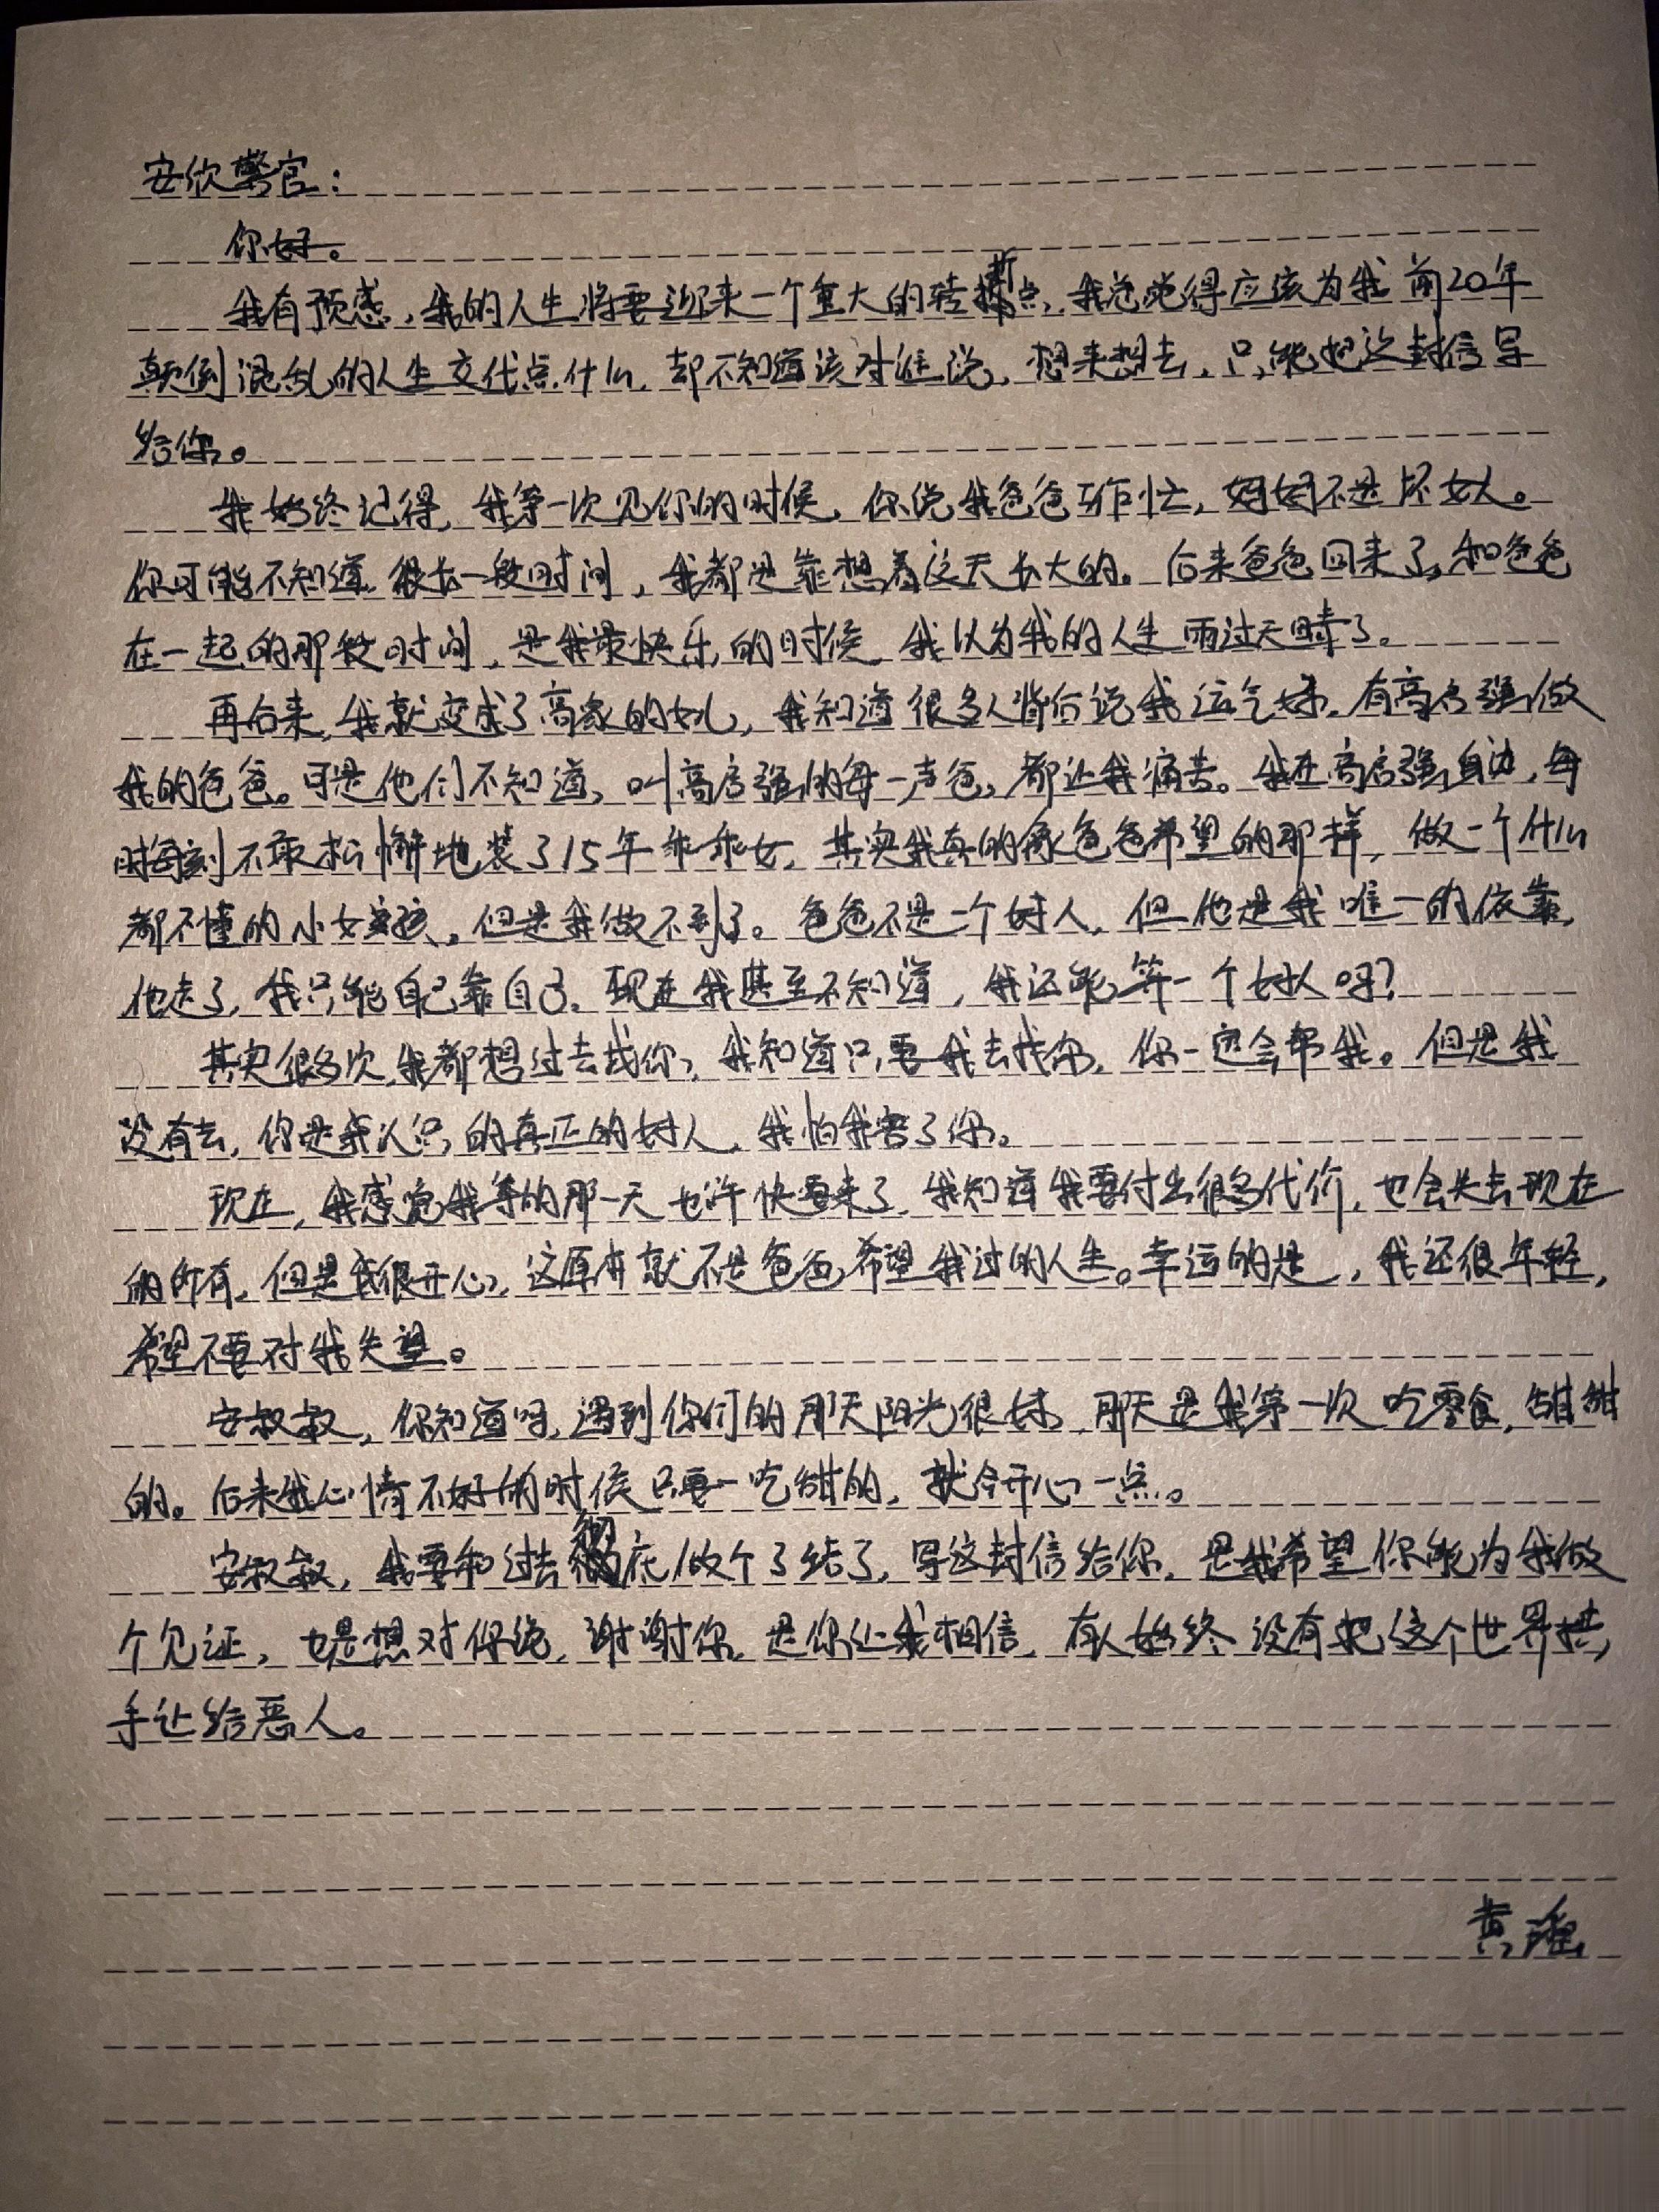 安欣警官：
你好。
我有预感，我的人生将要迎来一个重大的转折点，我总觉得应该为我前20年
颠倒混乱的人生交代点什么，却不知道该对谁说，想来想去，只能把这封信写
给你。
我始终记得，我第一次见你的时候，你说我爸爸工作忙，妈妈不是坏女人。
你可能不知道，很长一段时间，我都是靠想着这天长大的。后来爸爸回来了，和爸爸
在一起的那段时间，是我最快乐的时候，我以为我的人生雨过天晴了。
再后来，我就变成了高家的女儿，我知道很多人背后说我运气好，有高启强做
我的爸爸。可是他们不知道，叫高启强的每一声爸，都让我痛苦。我在高启强身边，每
时每刻不敢松懈地装了15年乖乖女，其实我真的像爸爸希望的那样，做一个什么
都不懂的小女孩，但是我做不到了。爸爸不是一个好人，但他是我唯一的依靠，
他走了，我只能自己靠自己。现在我甚至不知道，我还能算一个好人吗？
其实很多次，我都想过去找你，我知道只要我去找你，你一定会帮我。但是我
没有去，你是我认识的真正的好人，我怕我害了你。
现在，我感觉我等的那一天也许快要来了，我知道我要付出很多代价，也会失去现在
的所有，但是我很开心，这原本就不是爸爸希望我过的人生。幸运的是，我还很年轻，
希望不要对我失望。
安叔叔，你知道吗，遇到你们的那天阳光很好，那天是我第一次吃零食，甜甜
的。后来我心情不好的时候只要一吃甜的，就会开心一点。
安叔叔，我要和过去彻底做个了结了，写这封信给你，是我希望你能为我做
个见证，也是想对你说，谢谢你，是你让我相信，有人始终没有把这个世界拱
手让给恶人。
黄瑶